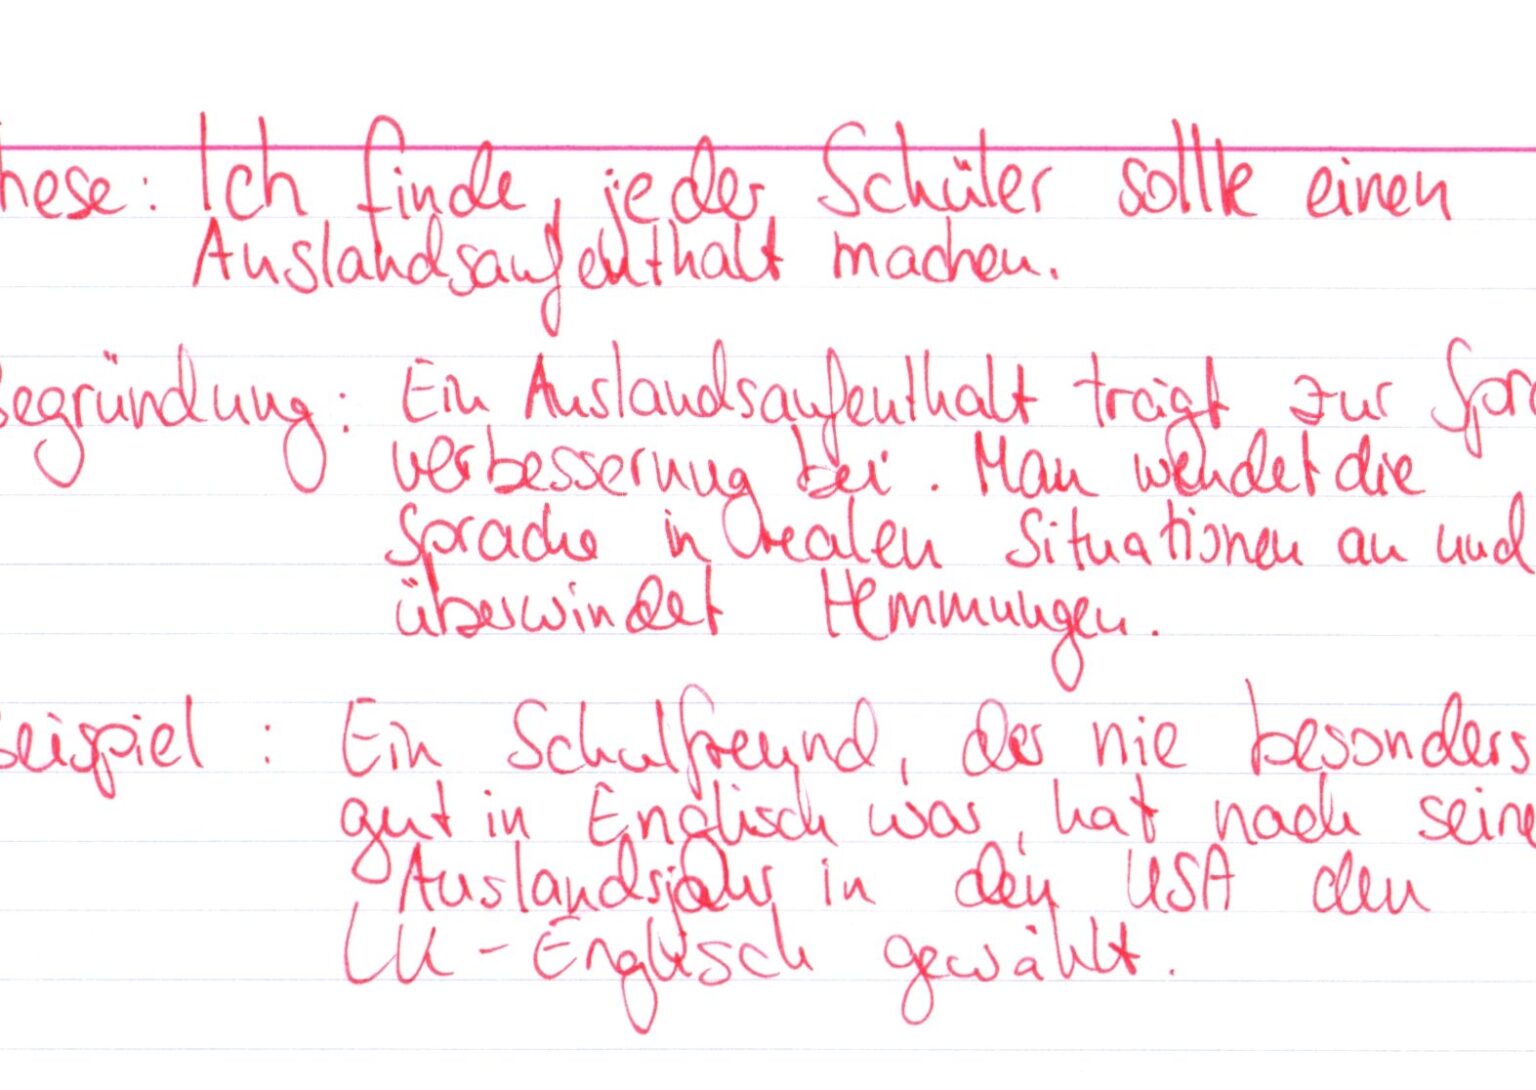 hese: Ich finde, jeder Schüler sollte einen
Auslandsaufenthalt machen.
egründung: Ein Auslandsaufenthalt trägt zur Spra
verbesserung bei. Man wendet die
Sprache in realen Situationen an und
überwindet Hemmungen.
Beispiel: Ein Schulfreund, der nie besonders
gut in Englisch war, hat nach seine
Auslandsjahr in den USA den
LK-Englisch gewählt.